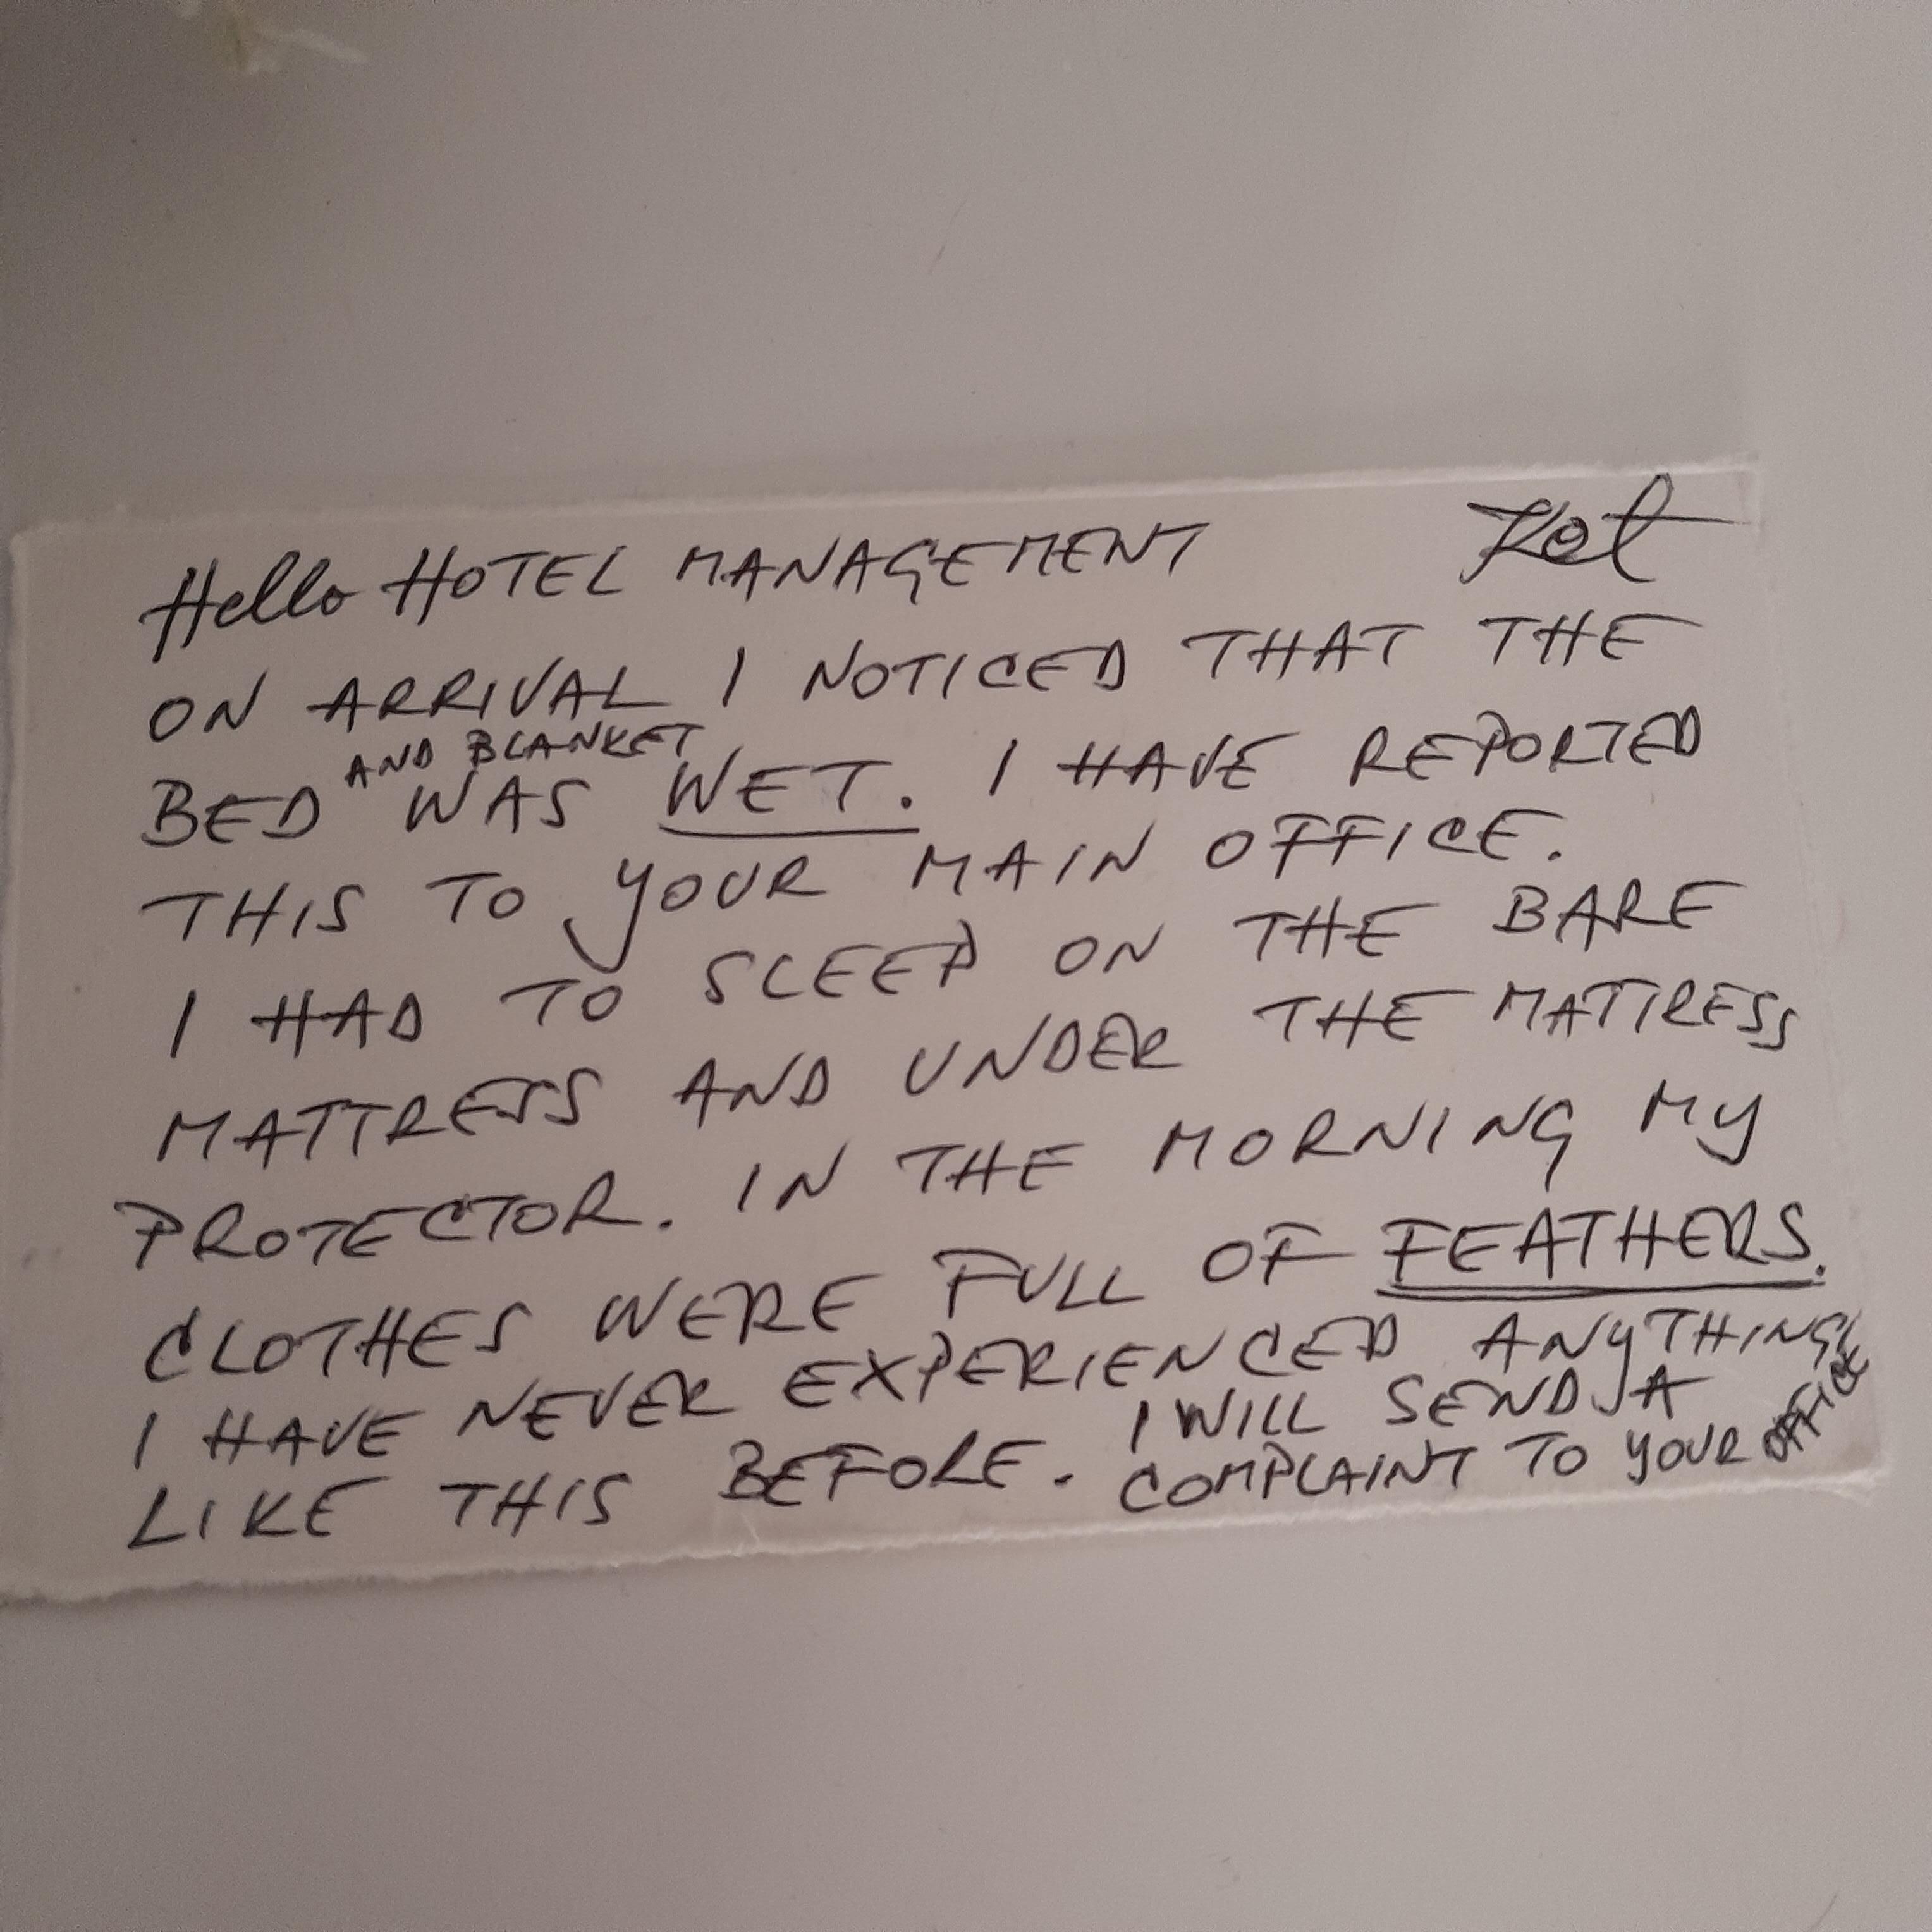 Hello HOTEL MANAGEMENT
ON ARRIVAL I NOTICED THAT THE
AND BLANKET
BED WAS WET. I HAVE REPORTED
THIS TO YOUR MAIN OFFICE.
I HAD TO SLEEP ON THE BARE
MATTRESS AND UNDER THE MATTRESS
PROTECTOR. IN THE MORNING MY
CLOTHES WERE FULL OF FEATHERS.
I HAVE NEVER EXPERIENCED ANYTHING
LIKE THIS BEFORE. I WILL SEND A
COMPLAINT TO YOUR OFFICE